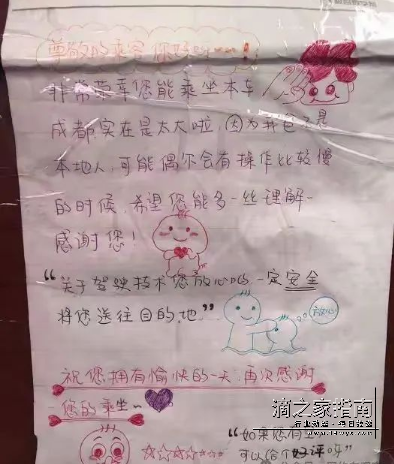 尊敬的乘客 你好
非常荣幸您能乘坐本车
成都实在是太大啦，因为我也不是
本地人，可能偶尔会有操作比较慢
的时候，希望您能多一丝理解~
感谢您！
“关于驾驶技术您放心吧一定安全
将您送往目的地”
放心
祝您拥有愉快的一天，再次感谢
您的乘坐~
☆☆☆☆☆
“如果您有空
可以给个好评呀”
滴之家指南